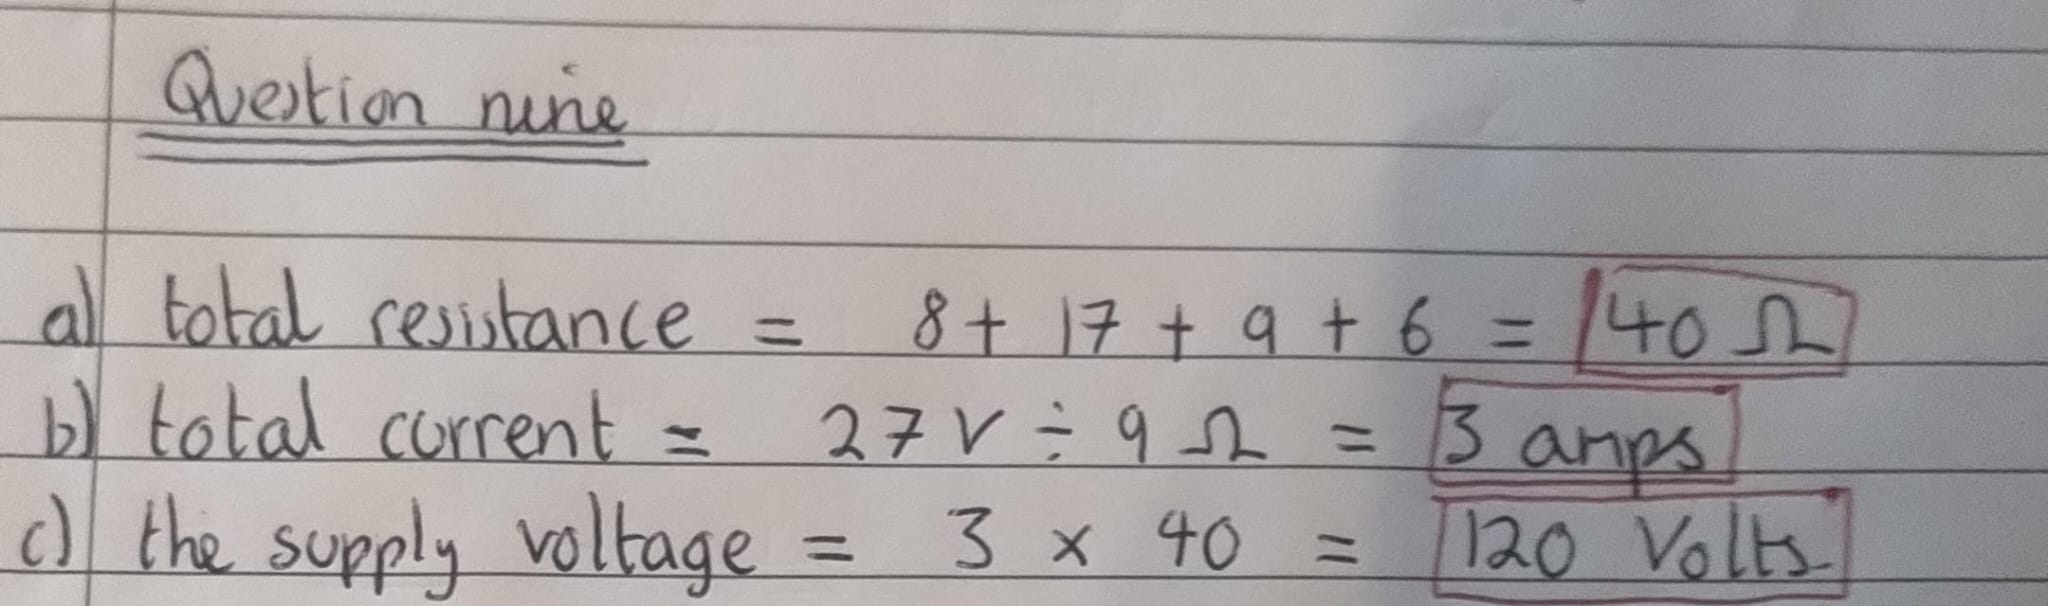 Question nine
a) total resistance = 8 + 17 + 9 + 6 = 40 Ω
b) total current = 27 V ÷ 9 Ω = 3 amps
c) the supply voltage = 3 × 40 = 120 Volts